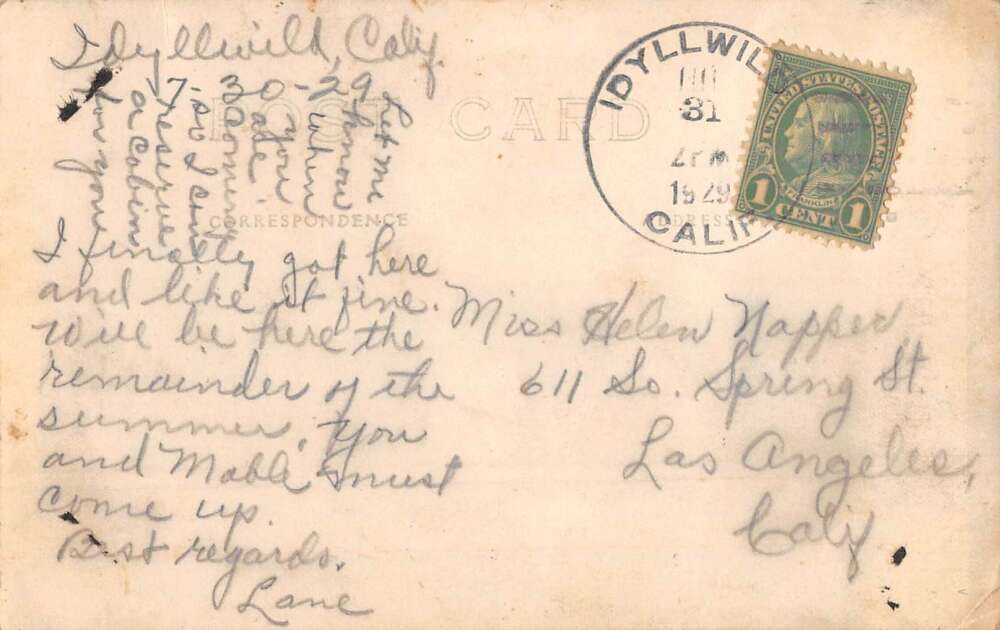 Idyllwild, Calif.
7-30-29
POST CARD
CORRESPONDENCE
ADDRESS
I finally got here
and like it fine.
Will be here the
remainder of the
summer, you
and Mable must
come up.
Best regards.
Lane
Let me
know
when
you
are
coming
so I can
reserve
a cabin
for you
IDYLLWILD
31
PM
1929
CALIF.
UNITED STATES POSTAGE
FRANKLIN
1 CENT 1
Miss Helen Napper
611 So. Spring St.
Los Angeles,
Calif